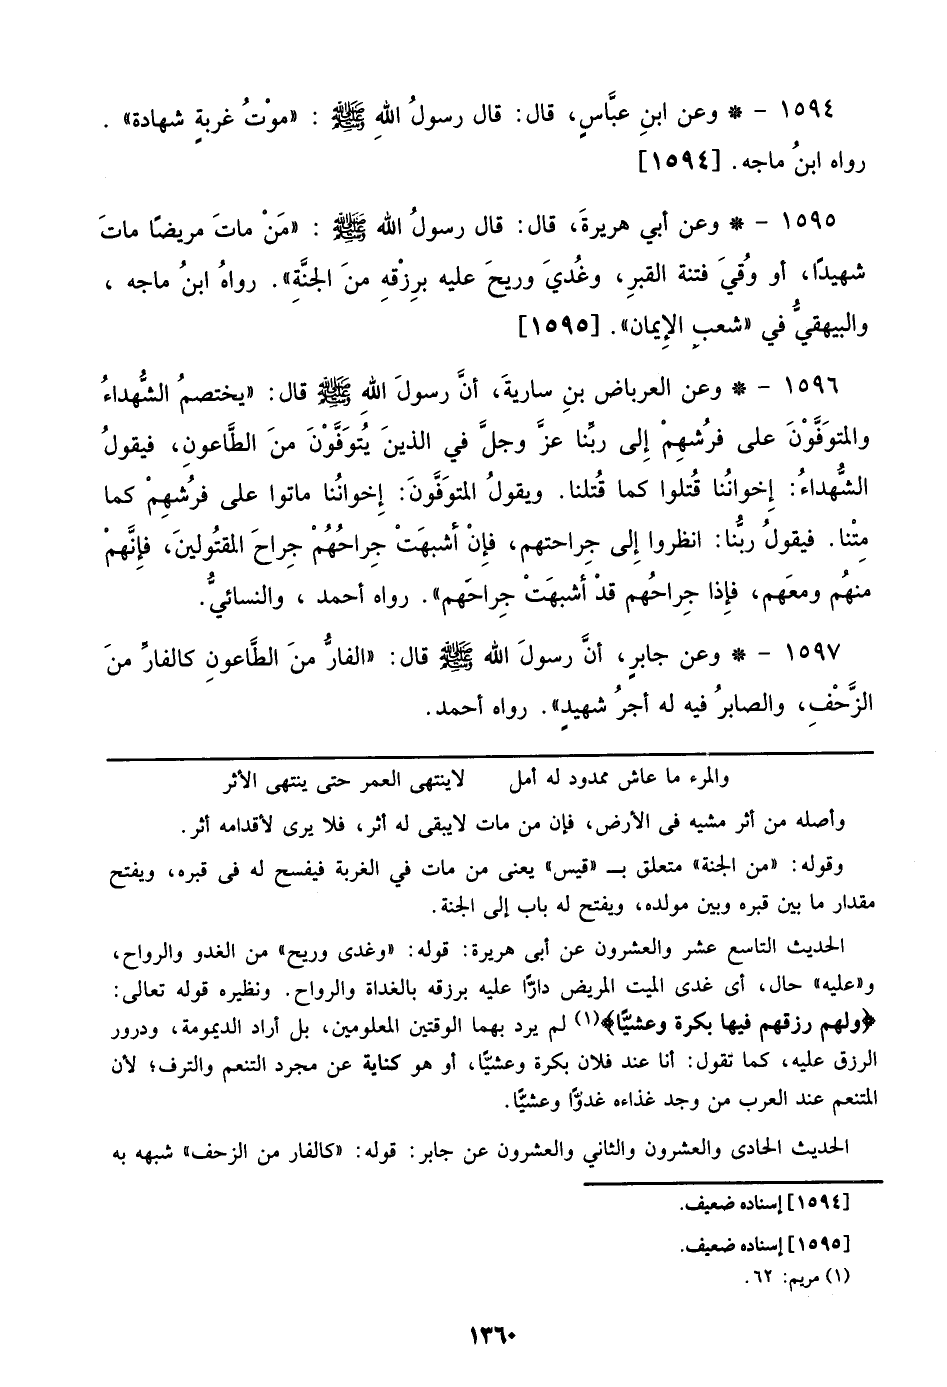 ١٥٩٤ - * وعن ابنِ عبَّاسٍ، قال: قال رسولُ اللهِ ﷺ : «موْتُ غربةٍ شهادة» .
رواه ابنُ ماجه. [١٥٩٤]
١٥٩٥ - * وعن أبي هريرةَ، قال: قال رسولُ الله ﷺ : «مَنْ ماتَ مريضًا ماتَ
شهيدًا، أو وُقيَ فتنة القبرِ، وغُديَ وريحَ عليه برِزْقهِ منَ الجنَّةِ». رواهُ ابنُ ماجه ،
والبيهقيُّ في «شعبِ الإِيمان». [١٥٩٥]
١٥٩٦ - * وعن العرباض بنِ ساريةَ، أنَّ رسولَ اللهِ ﷺ قال: «يختصمُ الشُّهداءُ
والمتوَفَّوْنَ على فرُشهِمْ إِلى ربِّنا عزَّ وجلَّ في الذينَ يُتوَفَّوْنَ منَ الطَّاعونِ، فيقولُ
الشُّهداءُ: إخوانُنا قُتلوا كما قُتلنا. ويقولُ المتوَفَّونَ: إخوانُنا ماتوا على فرُشهِمْ كما
مِتْنا. فيقولُ ربُّنا: انظروا إلى جِراحتهم، فإنْ أشبهَتْ جِراحُهُمْ جِراحَ المقتُولينَ، فإِنَّهمْ
منهُم ومعَهم، فإِذا جِراحُهم قدْ أشبهَتْ جِراحَهم». رواه أحمد ، والنسائيُّ.
١٥٩٧ - * وعن جابرٍ، أنَّ رسولَ الله ﷺ قال: «الفارُّ منَ الطَّاعونِ كالفارِّ منَ
الزَّحْفِ، والصابرُ فيه له أجرُ شهيدٍ». رواه أحمد.
والمرء ما عاش ممدود له أمل لاينتهى العمر حتى ينتهى الأثر
وأصله من أثر مشيه فى الأرض، فإن من مات لايبقى له أثر، فلا يرى لأقدامه أثر.
وقوله: «من الجنة» متعلق بـ «قيس» يعنى من مات في الغربة فيفسح له فى قبره، ويفتح
مقدار ما بين قبره وبين مولده، ويفتح له باب إلى الجنة.
الحديث التاسع عشر والعشرون عن أبى هريرة: قوله: «وغدى وريح» من الغدو والرواح،
و«عليه» حال، أى غدى الميت المريض دارًّا عليه برزقه بالغداة والرواح. ونظيره قوله تعالى:
﴿ولهم رزقهم فيها بكرة وعشيًّا﴾(١) لم يرد بهما الوقتين المعلومين، بل أراد الديمومة، ودرور
الرزق عليه، كما تقول: أنا عند فلان بكرة وعشيًّا، أو هو كناية عن مجرد التنعم والترف؛ لأن
المتنعم عند العرب من وجد غذاءه غدوًّا وعشيًّا.
الحديث الحادى والعشرون والثاني والعشرون عن جابر: قوله: «كالفار من الزحف» شبهه به
[١٥٩٤] إسناده ضعيف.
[١٥٩٥] إسناده ضعيف.
(١) مريم: ٦٢.
١٣٦٠